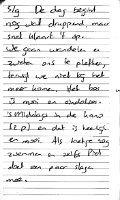 5/9 De dag begint
nog wat druppend, maar
snel klaart 't op.
We gaan wandelen en
zweten ons te pletter,
terwijl we niet bij het
meer komen. Het bos
is mooi en
's Middags in de kano
(2 p) en dat is heerlijk
en mooi. Als laatste nog
zwemmen en zelfs
doet een paar slagen
mee.